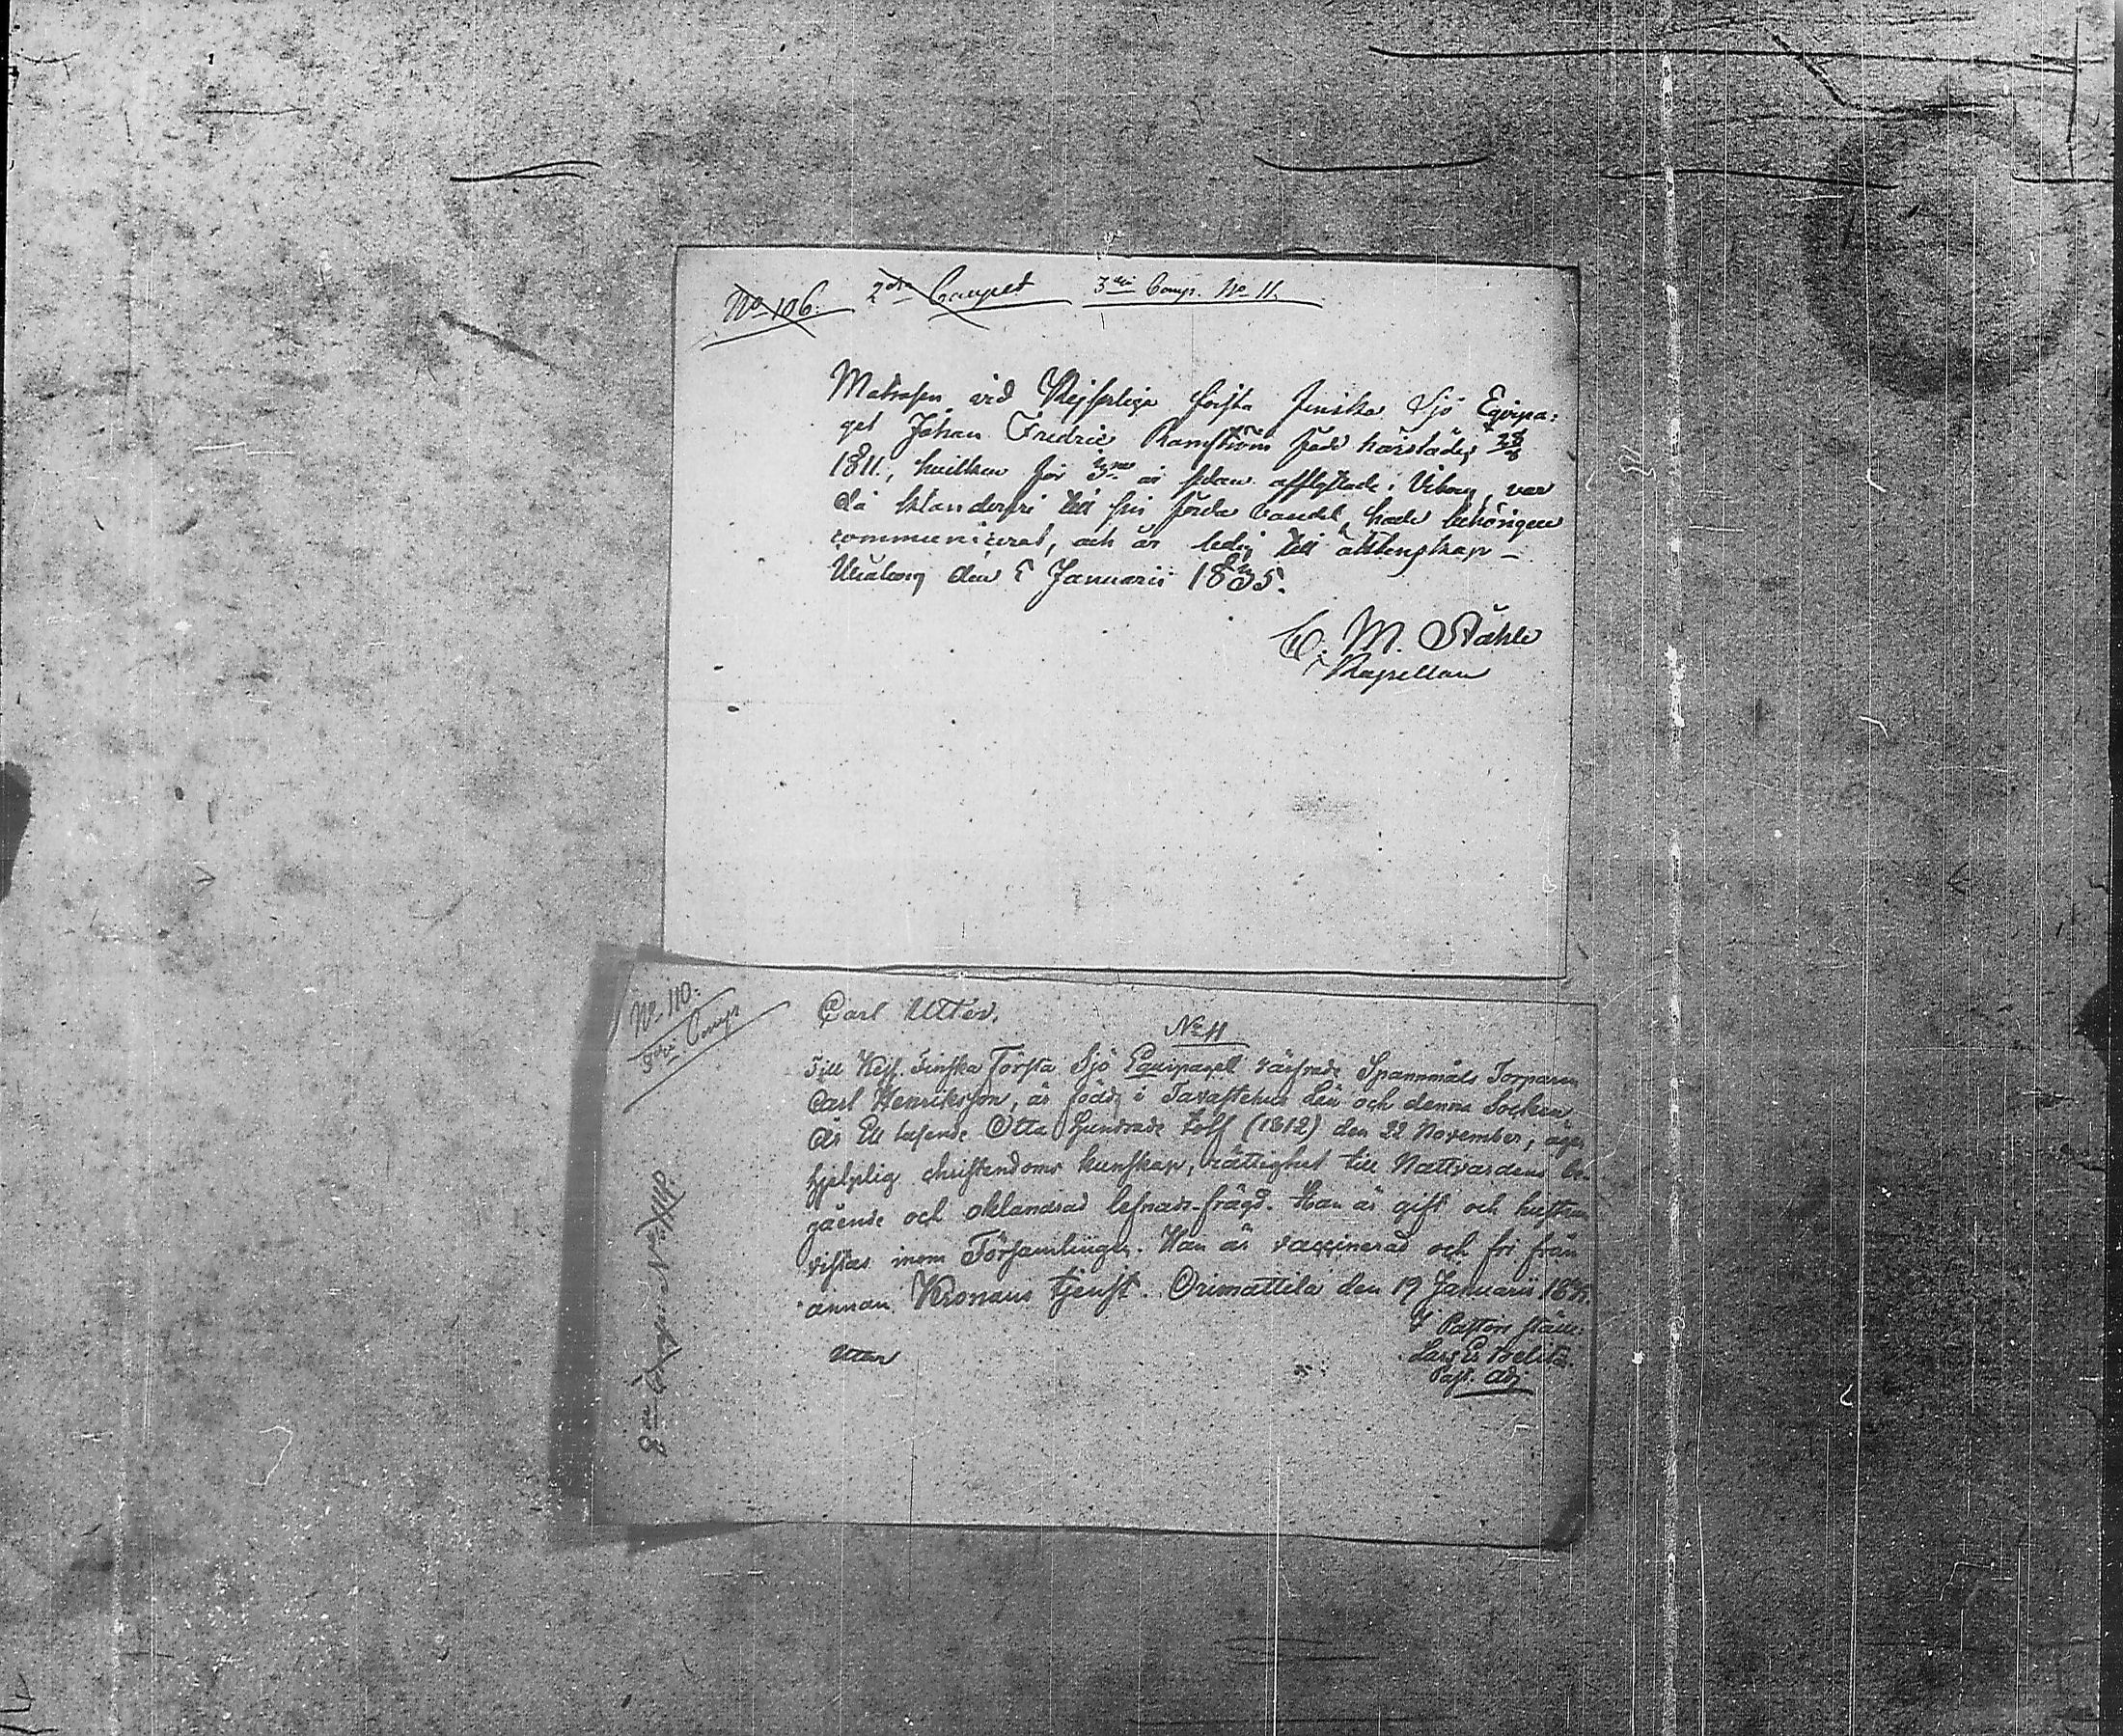 No 106. 2dra Compet 3die Comp. No 11.
Matrosen vid Kejserliga första finska Sjö Equipa-
get Johan Fredric Ramström född härstädes 28/8
1811., hvilken för 3ne år sedan afflyttade i Viborg, var
då klanderfri till sin förda vandel, hade behörigen
communicerat, och är ledig till äktenskap –
Uleåborg den 5 Januarii 1835.
C. M. Ståhle
Kapellan
No 110:
3die Comp
Carl Utter.
No 11
Till Kejs. Finska Första Sjö Equipaget värfvade Spannmåls Torparen
Carl Henriksson, är född i Tavastehus Län och denna Socken
År Ett tusende Otta Hundrade tolf (1812) den 22 November, äger
hjelplig christendoms kunskap, rättighet till Nattvardens be-
gående och oklandrad lefnads-frägd. Han är gift och hustrun
vistas inom Församlingen. Han är vaccinerad och fri från
annan Kronans tjenst. Orimattila den 19 Januarii
I Pastors ställe:
Past. Adj.
Utter
Comp No